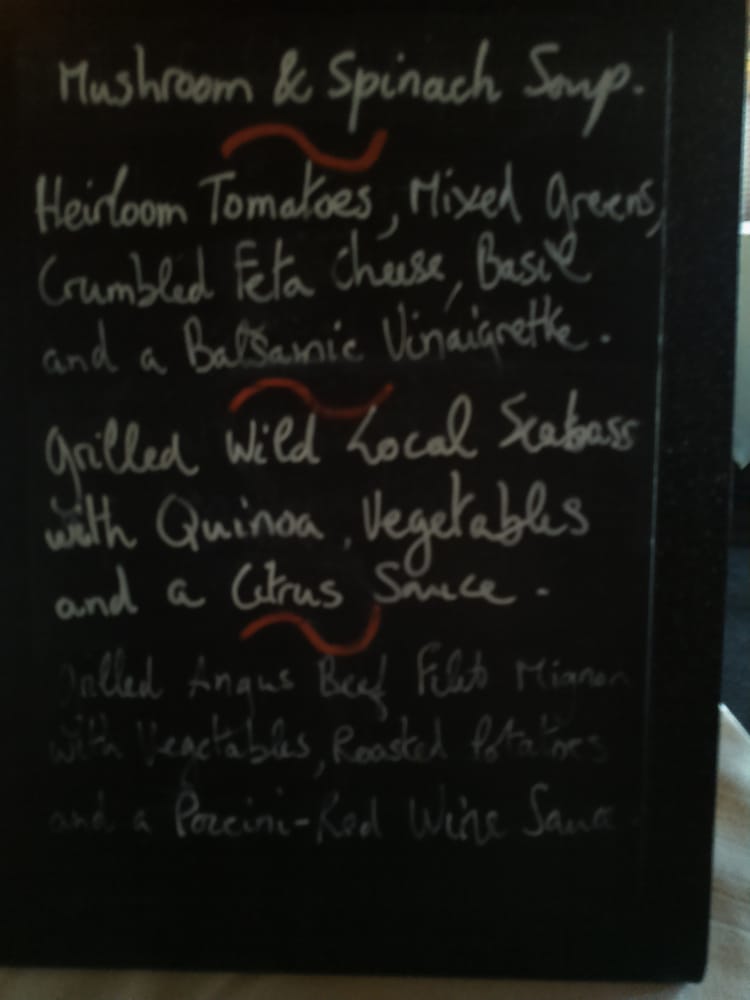 Mushroom & Spinach Soup.
Heirloom Tomatoes, Mixed Greens,
Crumbled Feta Cheese, Basil
and a Balsamic Vinaigrette.
Grilled Wild Local Seabass
with Quinoa, Vegetables
and a Citrus Sauce.
Grilled Angus Beef Filet Mignon
with Vegetables, Roasted Potatoes
and a Porcini-Red Wine Sauce.